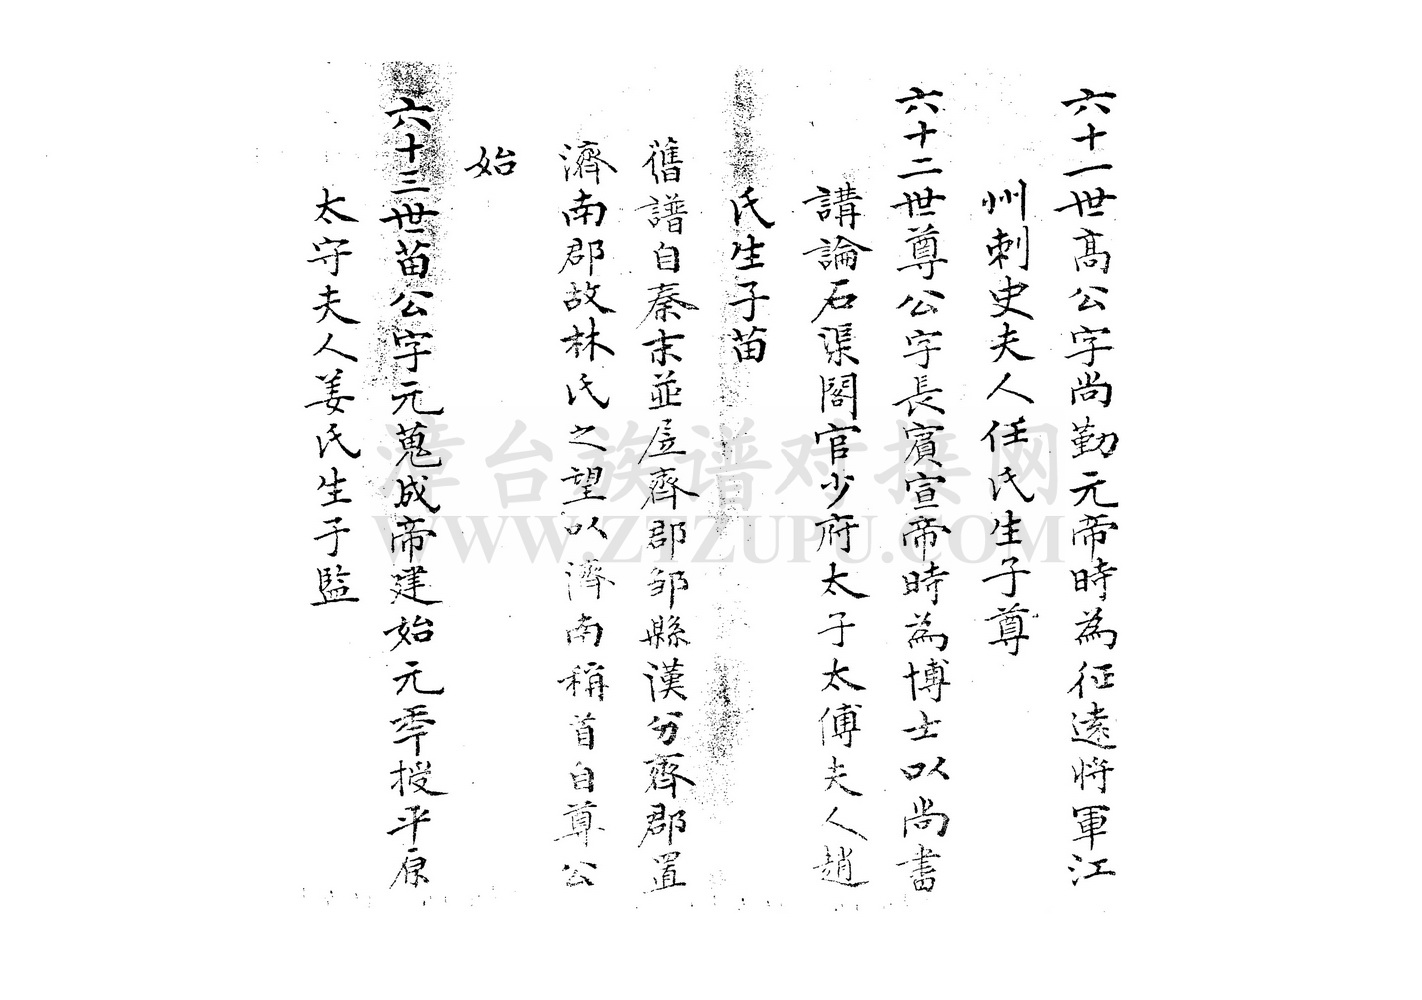 六十一世高公字尚勤元帝時為征遠將軍江
州刺史夫人任氏生子尊
六十二世尊公字長賓宣帝時為博士以尚書
講論石渠閣官少府太子太傅夫人趙
氏生子苗
舊譜自秦末並居齊郡邹縣漢分齊郡置
濟南郡故林氏之望以濟南稱首自尊公
始
六十三世苗公字元蒐成帝建始元年授平原
太守夫人姜氏生子監
漳台族谱对接网
WWW.ZTZUPU.COM